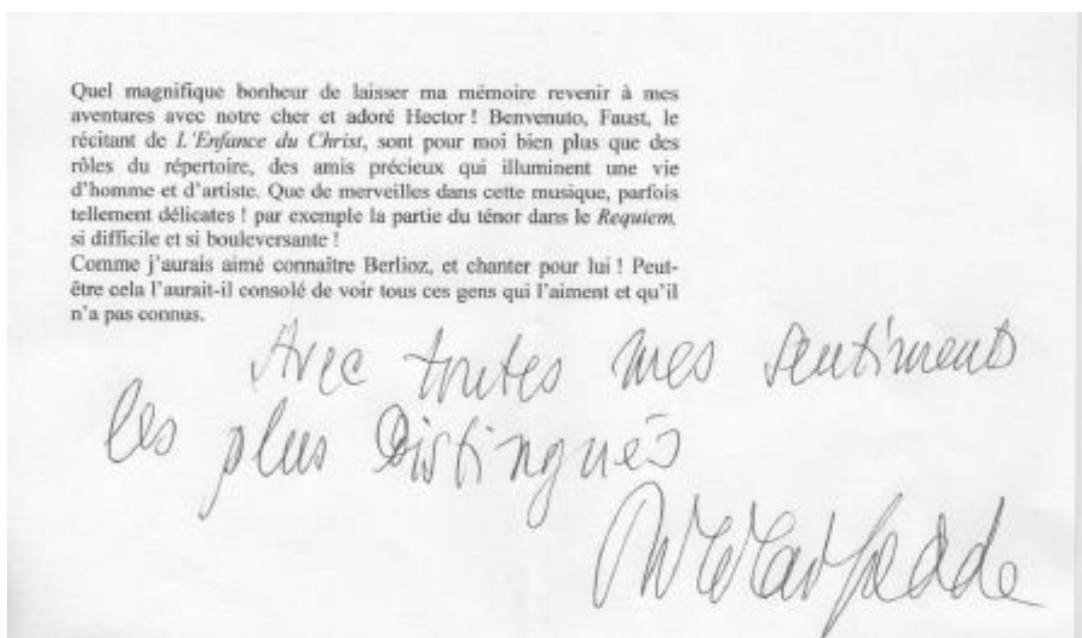 Quel magnifique bonheur de laisser ma mémoire revenir à mes
aventures avec notre cher et adoré Hector ! Benvenuto, Faust, le
récitant de L'Enfance du Christ, sont pour moi bien plus que des
rôles du répertoire, des amis précieux qui illuminent une vie
d'homme et d'artiste. Que de merveilles dans cette musique, parfois
tellement délicates ! par exemple la partie du ténor dans le Requiem,
si difficile et si bouleversante !
Comme j'aurais aimé connaître Berlioz, et chanter pour lui ! Peut-
être cela l'aurait-il consolé de voir tous ces gens qui l'aiment et qu'il
n'a pas connus.
Avec toutes mes sentiments
les plus Distingués